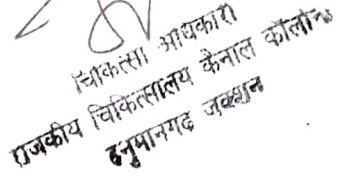 चिकित्सा अधिकारी
राजकीय चिकित्सालय कैनाल कॉलोनी
हनुमानगढ़ जंक्शन